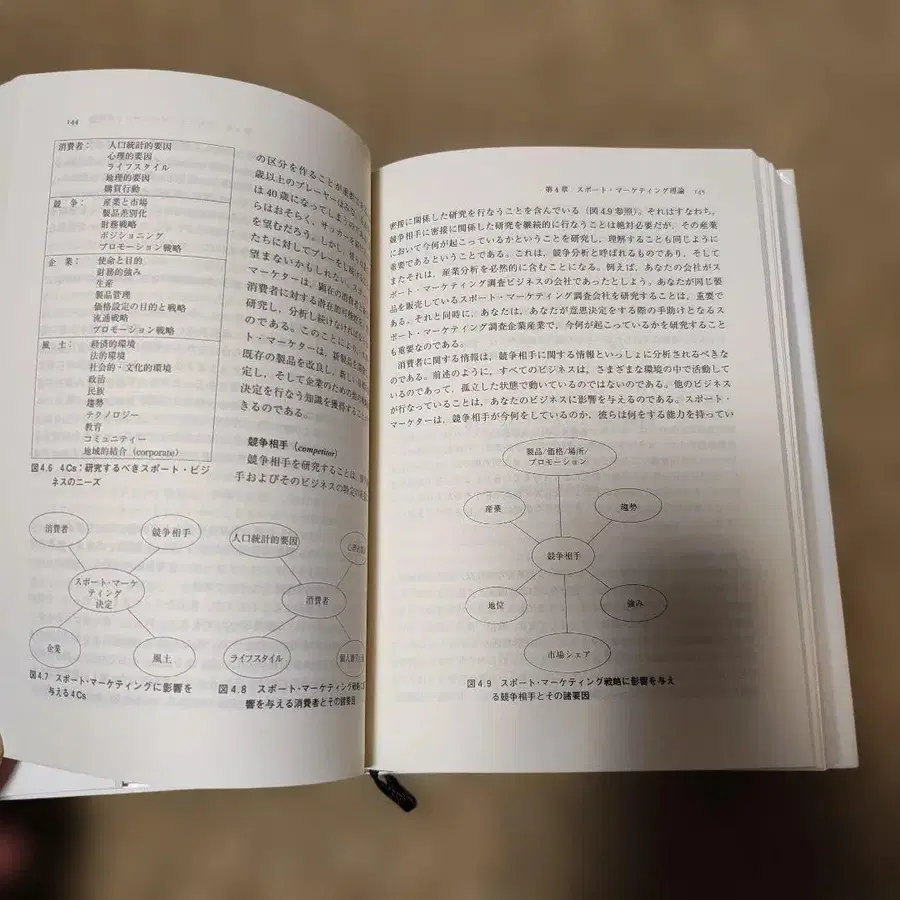 144
消費者： 人口統計的要因
心理的要因
ライフスタイル
地理的要因
購買行動
競争： 産業と市場
製品差別化
財務戦略
ポジショニング
プロモーション戦略
企業： 使命と目的
財務的強み
生産
製品管理
価格設定の目的と戦略
流通戦略
プロモーション戦略
風土： 経済的環境
法的環境
社会的・文化的環境
政治
民族
趨勢
テクノロジー
教育
コミュニティー
地域的結合（corporate）
図4.6 4Cs：研究するべきスポート・ビジ
ネスのニーズ
の区分を作ることが重要
歳以上のプレーヤーはみな
は40歳になってしまうので
らはおそらく、サッカーを
を望むだろう。しかし、
たちに対してプレーをし
望まないかもしれない。
マーケターは、顕在の消費者と
消費者に対する潜在的可能性
研究し、分析し続けなければ
のである。このことにより、
ト・マーケターは、新製品
既存の製品を改良し、新しい
定し、そして企業のための
決定を行なう知識を獲得する
きるのである。
競争相手（competitor）
競争相手を研究することは、
手およびそのビジネスの特定の
消費者
競争相手
スポート・マーケ
ティング
決定
企業
風土
図4.7 スポート・マーケティングに影響を
与える4Cs
人口統計的要因
消費者
ライフスタイル
図4.8 スポート・マーケティング戦略に
響を与える消費者とその諸要因
第4章 スポート・マーケティング理論 145
密接に関係した研究を行なうことを含んでいる（図4.9参照）。それはすなわち、
競争相手に密接に関係した研究を継続的に行なうことは絶対必要だが、その産業
において今何が起こっているかということを研究し、理解することも同じように
重要であるということである。これは、競争分析と呼ばれるものであり、そして
またそれは、産業分析を必然的に含むことになる。例えば、あなたの会社がス
ポート・マーケティング調査ビジネスの会社であったとしよう。あなたが同じ製
品を販売しているスポート・マーケティング調査会社を研究することは、重要で
ある。それと同時に、あなたは、あなたが意思決定をする際の手助けとなるス
ポート・マーケティング調査企業産業で、今何が起こっているかを研究すること
も重要なのである。
消費者に関する情報は、競争相手に関する情報といっしょに分析されるべきな
のである。前述のように、すべてのビジネスは、さまざまな環境の中で活動して
いるのであって、孤立した状態で動いているのではないのである。他のビジネス
が行なっていることは、あなたのビジネスに影響を与えるのである。スポート・
マーケターは、競争相手が今何をしているのか、彼らは何をする能力を持ってい
製品/価格/場所/
プロモーション
産業
趨勢
競争相手
地位
強み
市場シェア
図4.9 スポート・マーケティング戦略に影響を与え
る競争相手とその諸要因